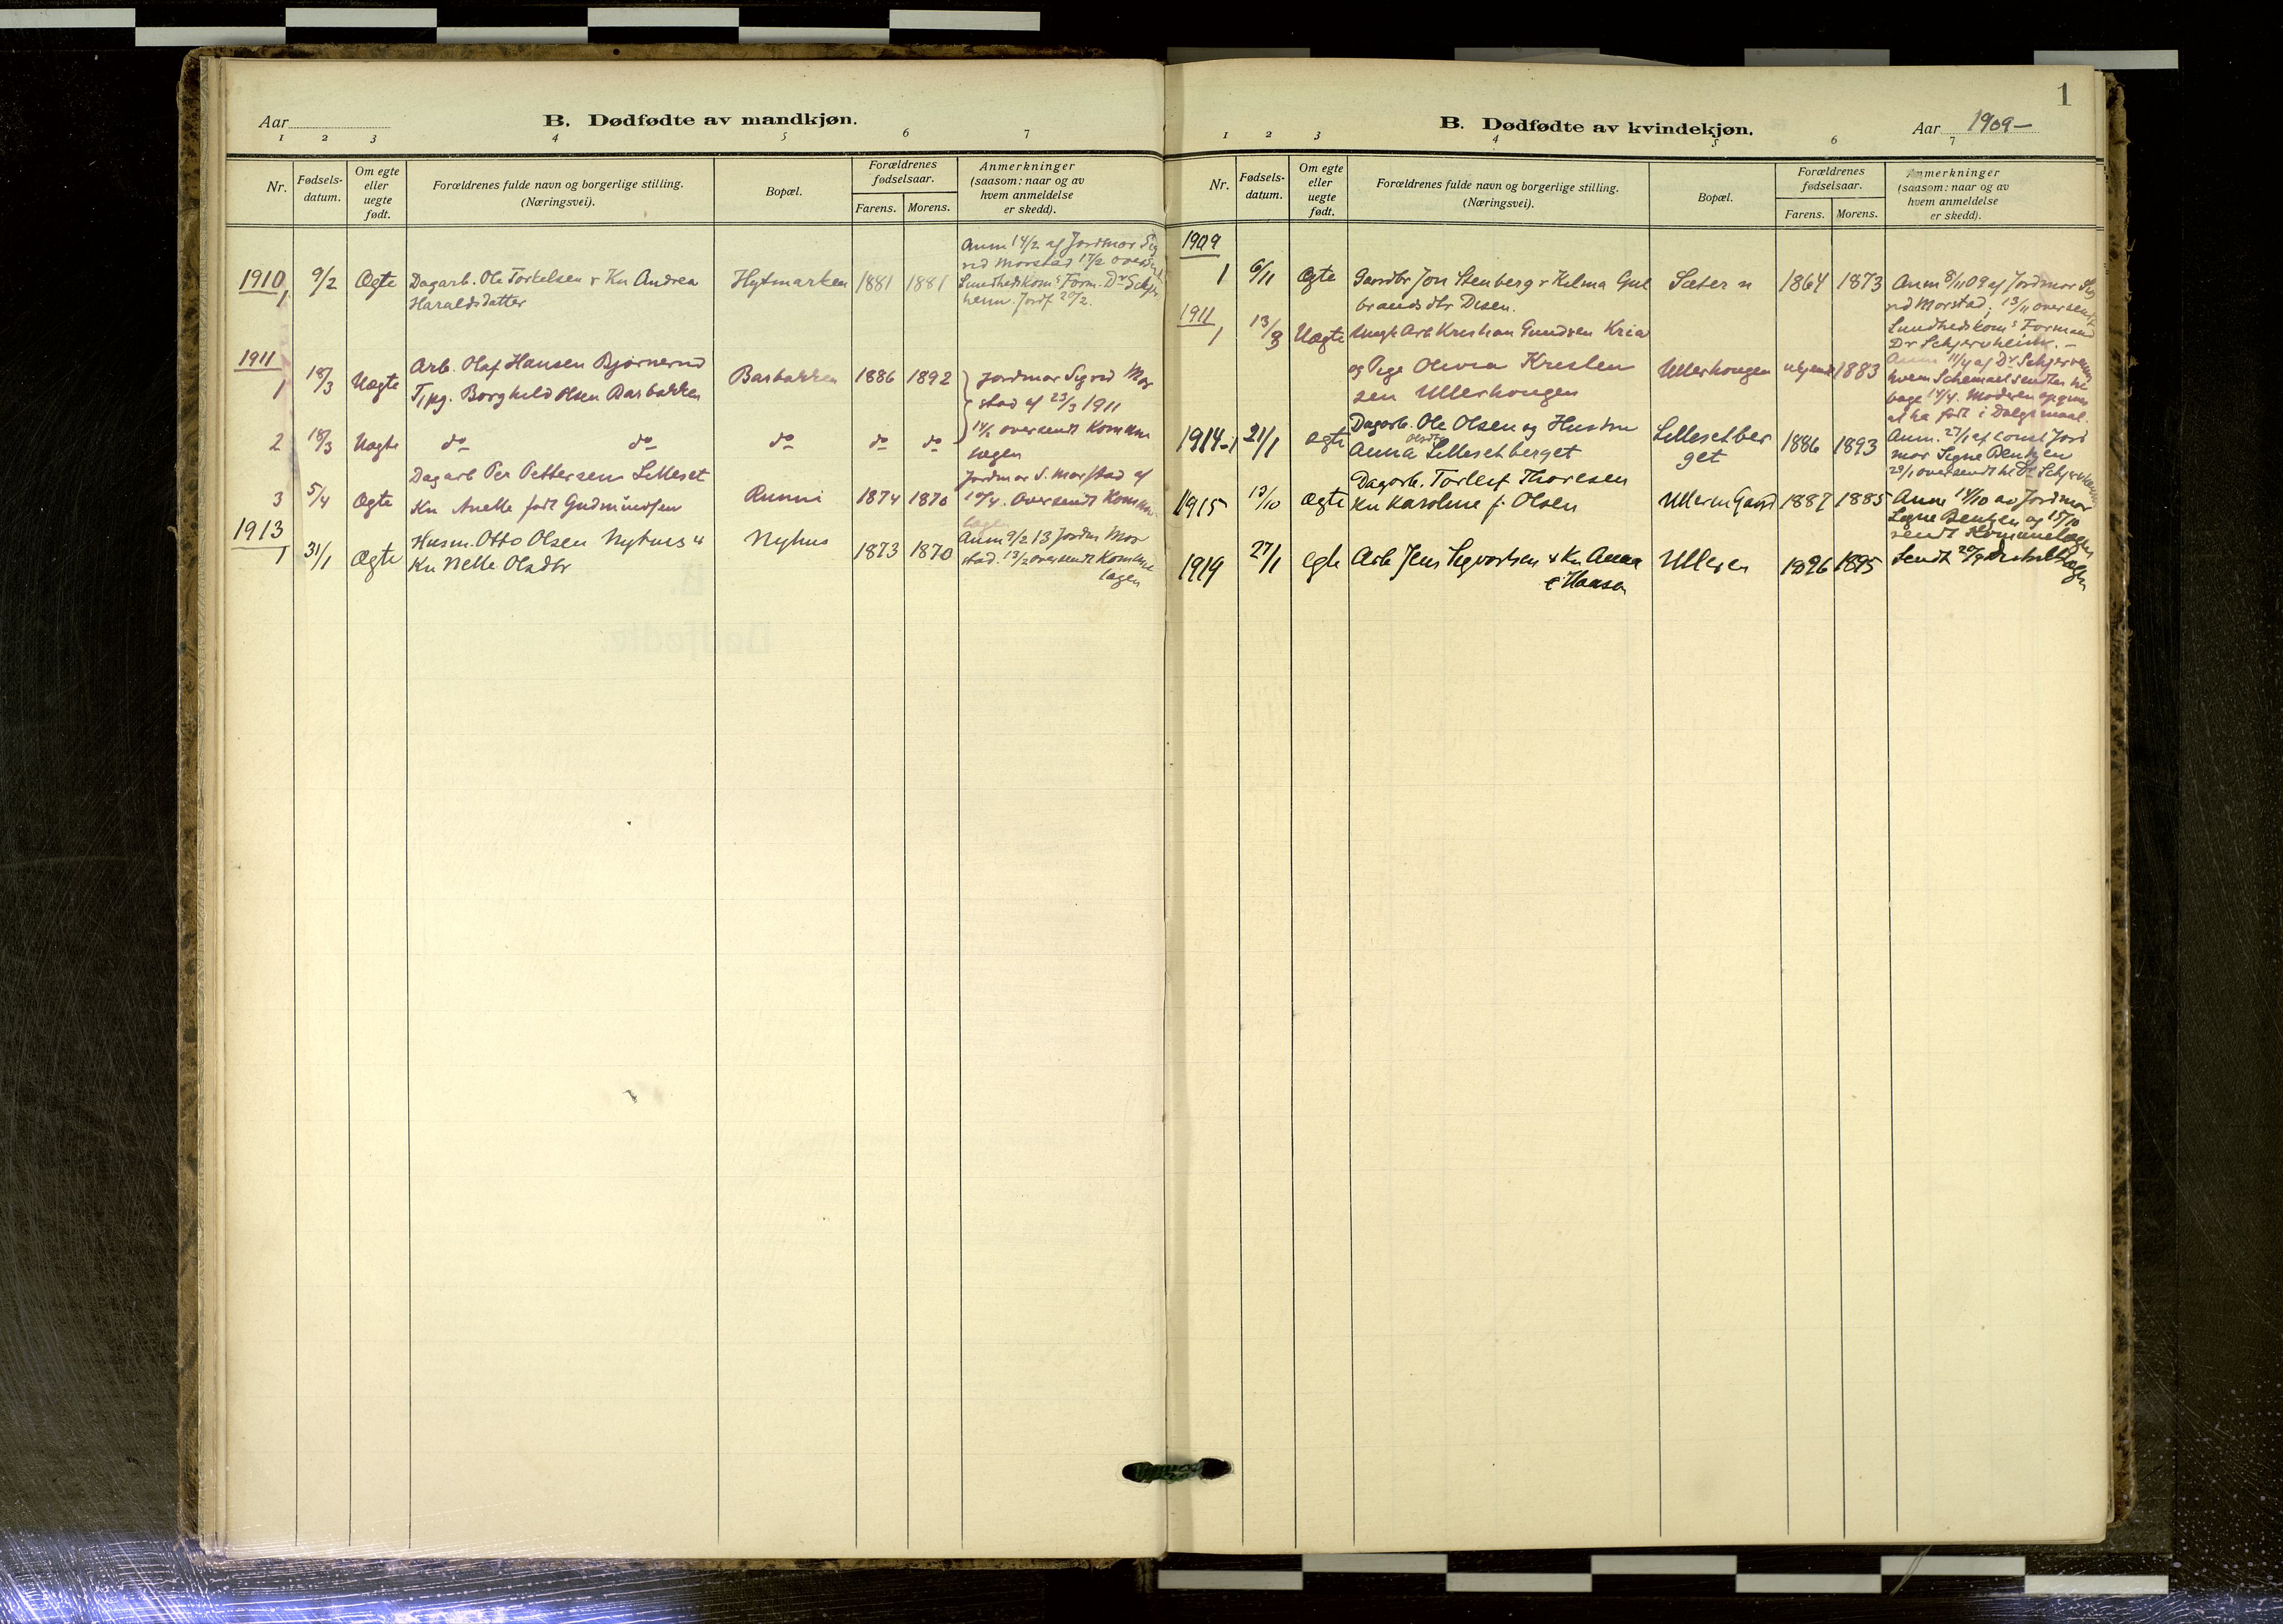 Aar
B. Dødfødte av mandkjøn.
1 2 3 4 5 6 7
Nr.
Fødsels-
datum.
Om egte
eller
uegte
født.
Forældrenes fulde navn og borgerlige stilling.
(Næringsvei).
Bopæl.
Forældrenes
fødselsaar.
Farens. Morens.
Anmerkninger
(saasom: naar og av
hvem anmeldelse
er skedd).
1910
1 9/2 Ægte Dagarb. Ole Torkelsen & Ku Andrea Hytmarken 1881 1881
Haraldsdatter
Anm 14/2 af Jordmor Sig
rid Morstad 17/2 oversendt
Sundhedskoms Form. Dr Schjer
heim. Jordf 20/2.
1911
1 18/3 Uægte Arb. Olaf Hansen Bjørnerud Barbakken 1886 1892
Tj.pg. Borghild Olsen Barbakken
Jordmor Sigrid Mor
stad af 23/3 1911
2 18/3 Uægte do do do do do
oversendt Kommune
lægen
3 5/4 Ægte Dagarb Per Pettersen Lilleset
Ku Anette født Gudmundsen Runni 1874 1870
Jordmor S. Morstad af
10/4. Oversendt Kommune
lægen
1913
1 31/1 Ægte Husm. Otto Olsen Nyhus & Nyhus 1873 1870
Ku Nelle Olsdtr
Anm 9/2 13 Jordm Mor
stad. 13/2 oversendt Kommune
lægen
1
B. Dødfødte av kvindekjøn.
Aar 1909-
1 2 3 4 5 6 7
Nr.
Fødsels-
datum.
Om egte
eller
uegte
født.
Forældrenes fulde navn og borgerlige stilling.
(Næringsvei).
Bopæl.
Forældrenes
fødselsaar.
Farens. Morens.
Anmerkninger
(saasom: naar og av
hvem anmeldelse
er skedd).
1909
1 6/11 Ægte Gaardbr Jon Stenberg & Helma Gul Sæter n 1864 1873
brandsdtr Disen.
Anm 8/11 09 af Jordmor Sig
rid Morstad; 13/11 oversendt
Sundhedskoms Formand
Dr Schjerveheim. -
1911
1 13/3 Uægte Ungk Arb Kristian Gundsen Kria
og Pige Olivia Kristen Ullerhougen ukjent 1883
sen Ullerhougen
Anm 11/4 af Dr Schjerven
hvem Schemaet sendtes til
bage 14/4. Moderen opgives
at ha født i Dølgsmaal.
1914-1 21/1 ægte Dagarb. Ole Olsen og Hustru
Anna Olsdtr Lillesetberget Lillesetber
get 1886 1893
Anm. 27/1 af const Jord
mor Signe Bentzen
29/1 oversendt til Dr Schjerveheim
1915 13/10 Ægte Dagarb. Torleif Thoresen
Ku Karoline f. Olsen Ulleren Gaard 1887 1885
Anm 14/10 av Jordmor
Signe Bentzen og 15/10
sendt Kommunelægen
1919 27/1 egte Arb Jens Sigvartsen & Ku Anna Ulleren 1896 1895
f Hansen
Sendt 20/9 Distriktslægen